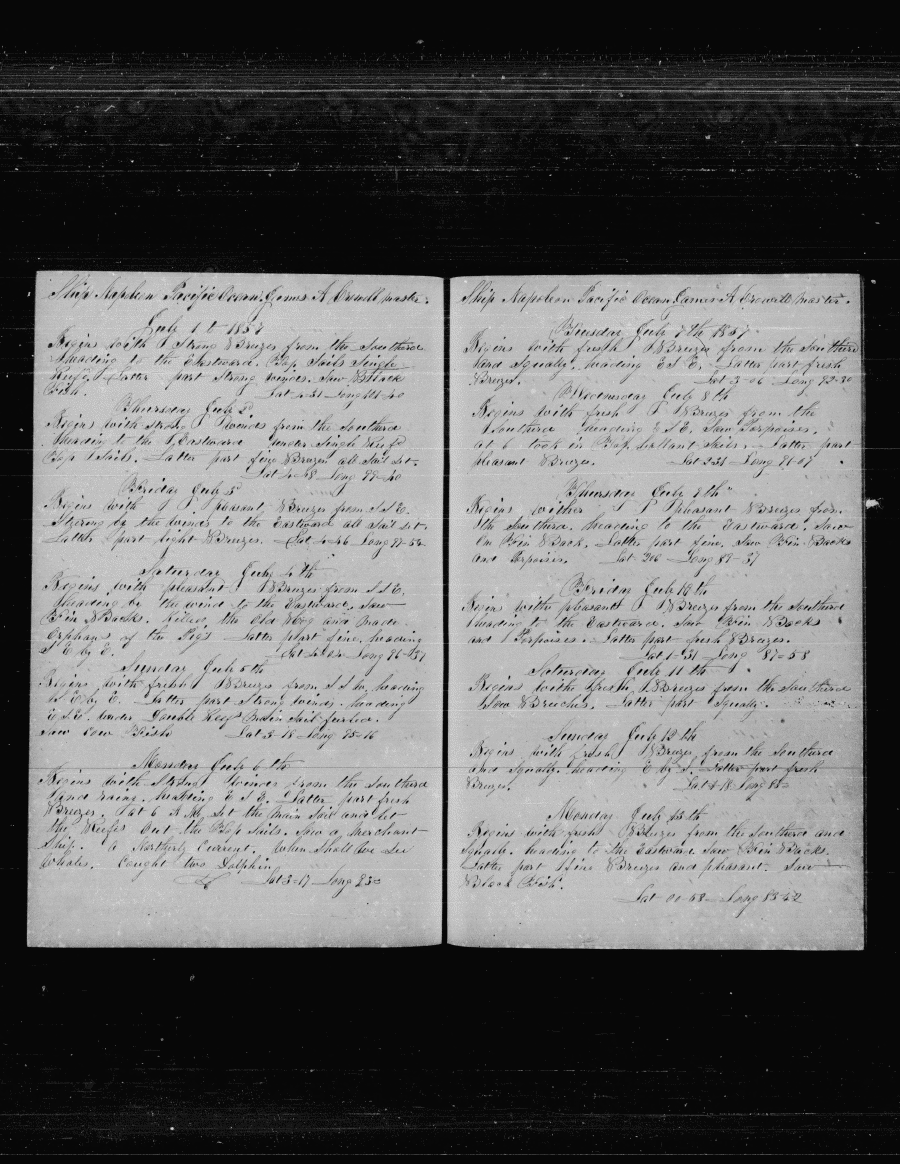 Ship Napoleon Pacific Ocean, James A Crowell master.
July 1st 1857
Begins with Strong Breezes from the Southerd
heading to the Eastward. Top Sails Single
Reefd. Latter part Strong winds. Saw Black
Fish. Lat 4-31 Long 40
Thursday July 2d
Begins with Strong winds from the Southerd
heading to the Eastward under Single Reefd
Top Sails. Latter part fine Breezes all Sail set.
Lat Long 40
Friday July 3d
Begins with pleasant Breezes from S.S.E.
Stering by the wind to the Eastward all Sail set.
Latter part light Breezes. Lat 4-46 Long
Saturday July 4th
Begins with pleasant Breezes from S.S.E.
heading by the wind to the Eastward. Saw
Fin Backs. Killed the Old Hog and made
Orphans of the Pigs Latter part fine, heading
S.E. by E. Long 96-37
Sunday July 5th
Begins with fresh Breezes from S.S.W. heading
by E. Latter part Strong winds. heading
E.S.E. under Double Reef Main Sail furled.
Saw Cow Fish Lat 3-18 Long 95-16
Monday July 6th
Begins with Strong winds from the Southerd
and rainy. heading E.S.E. Latter part fresh
Breezes. At 6 A.M. Set the Main Sail and let
the Reefs out the Top Sails. Saw a Merchant
Ship. a Northerly Current. When Shall We See
Whales. Caught two Dolphin
Lat 3-17 Long
Ship Napoleon Pacific Ocean James A Crowell master.
Tuesday July 7th 1857
Begins with fresh Breezes from the Southerd
and Squally. heading E.S.E. Latter part fresh
Breezes. Lat 3-06 Long 92-30
Wednesday July 8th
Begins with fresh Breezes from the
Southerd heading E.S.E. Saw Porpoises.
at 6 took in Top Gallant Sails. Latter part
pleasant Breezes. Lat Long 91-07
Thursday July 9th
Begins wither pleasant Breezes from
the Southerd. heading to the Eastward. Saw
Fin Back. Latter part fine. Saw Fin Backs
and Porpoises. Lat Long 89-37
Friday July 10th
Begins with pleasant Breezes from the Southerd
heading to the Eastward. Saw Fin Backs
and Porpoises. Latter part fresh Breezes.
Lat 1-31 Long 87-58
Saturday July 11th
Begins with fresh Breezes from the Southerd
Saw Breeches. Latter part Squally.
Sunday July 12th
Begins with fresh Breezes from the Southerd
and Squally. heading E by S. Latter part fresh
Breezes. Lat Long
Monday July 13th
Begins with fresh Breezes from the Southerd and
Squalls. heading to the Eastward. Saw Fin Backs.
Latter part fine Breezes and pleasant. Saw
Black Fish.
Lat 00-58 Long 83-22